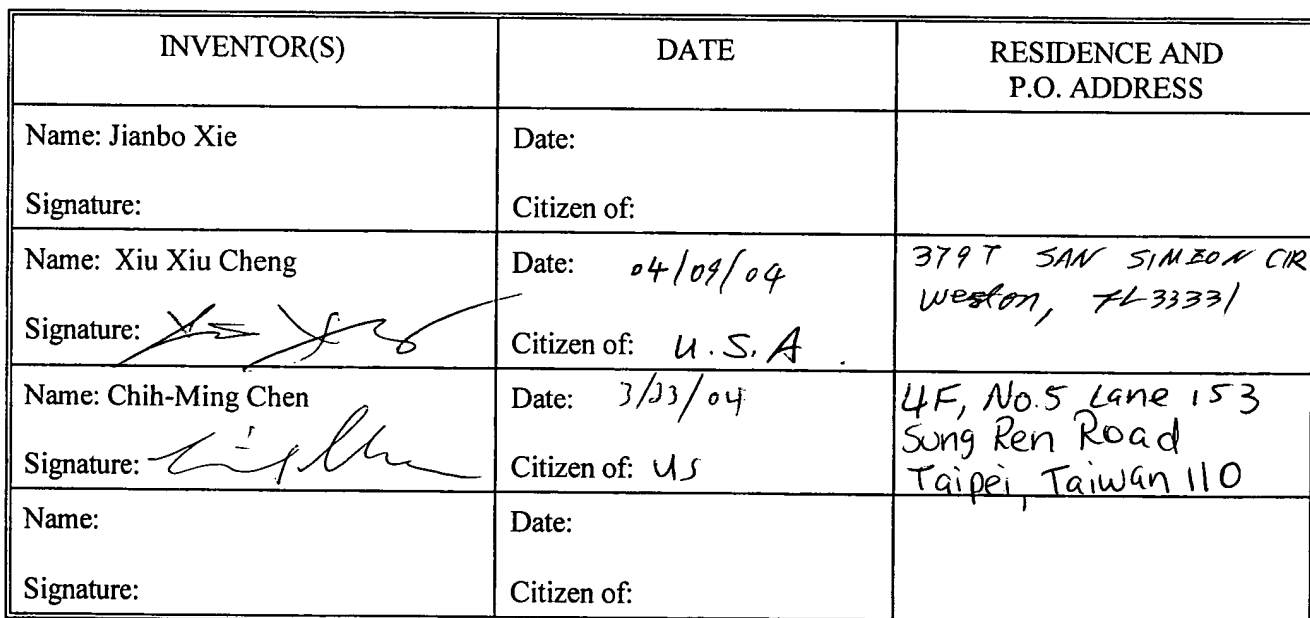 INVENTOR(S)
DATE
RESIDENCE AND
P.O. ADDRESS
Name: Jianbo Xie
Signature:
Date:
Citizen of:
Name: Xiu Xiu Cheng
Signature:
Date: 04/09/04
Citizen of: U.S.A.
SAN SIMEON CIR
Weston, FL 33331
Name: Chih-Ming Chen
Signature:
Date:
Citizen of: US
4F, No.5 Lane 153
Sung Ren Road
Taipei, Taiwan 110
Name:
Signature:
Date:
Citizen of: